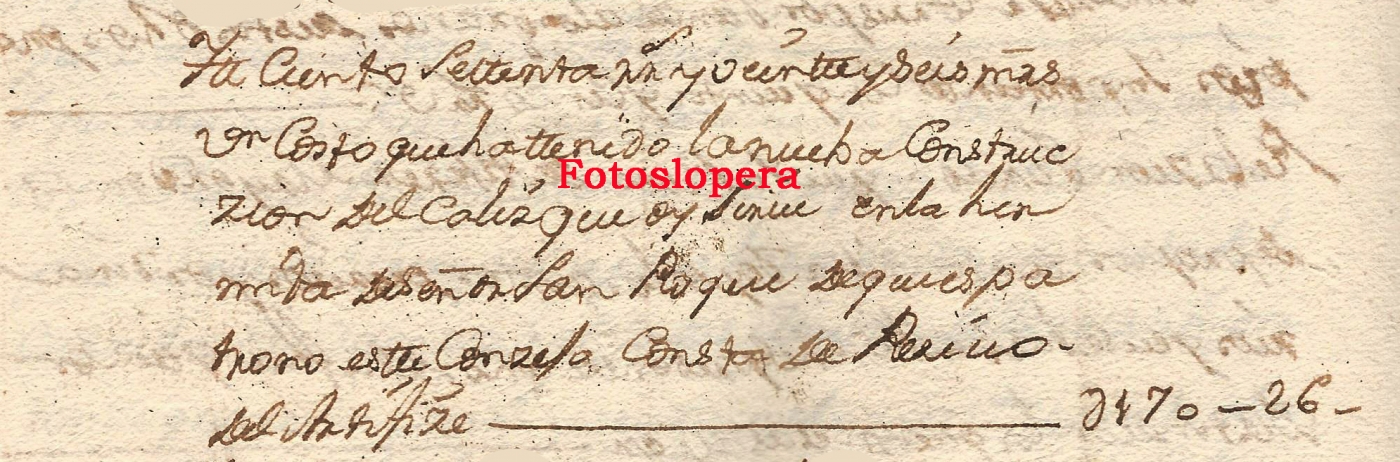 Ytt Ciento Settenta rrs y veintte y Seis mrs
en Costo que ha ttenido la nueba Construc
Fotoslopera
zion del Caliz que oy Sirue en la her
mita de Señor San Roque de que es pa
trono este Conzejo Consta de Reciuo -
del Artifize D170-26-